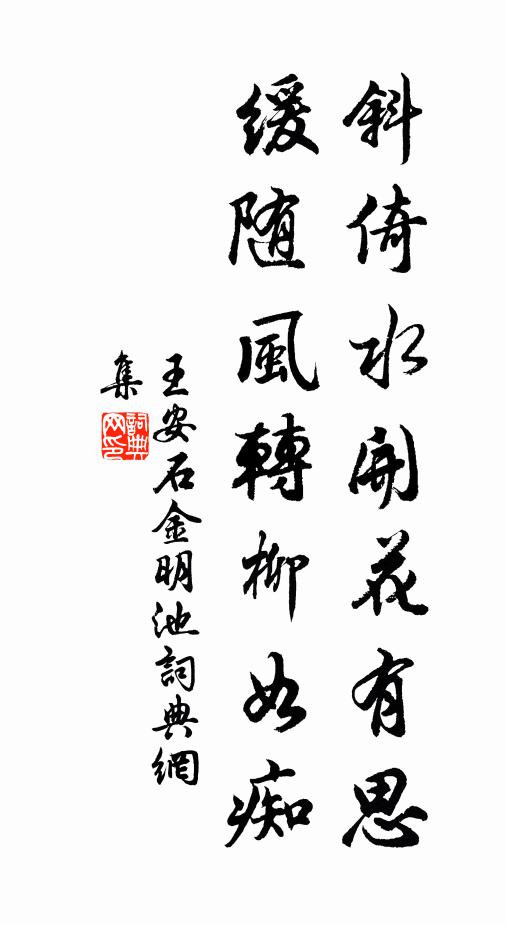 斜倚水開花有思
緩随風轉柳如痴
王安石金明池詞典網
集
詞典
网印